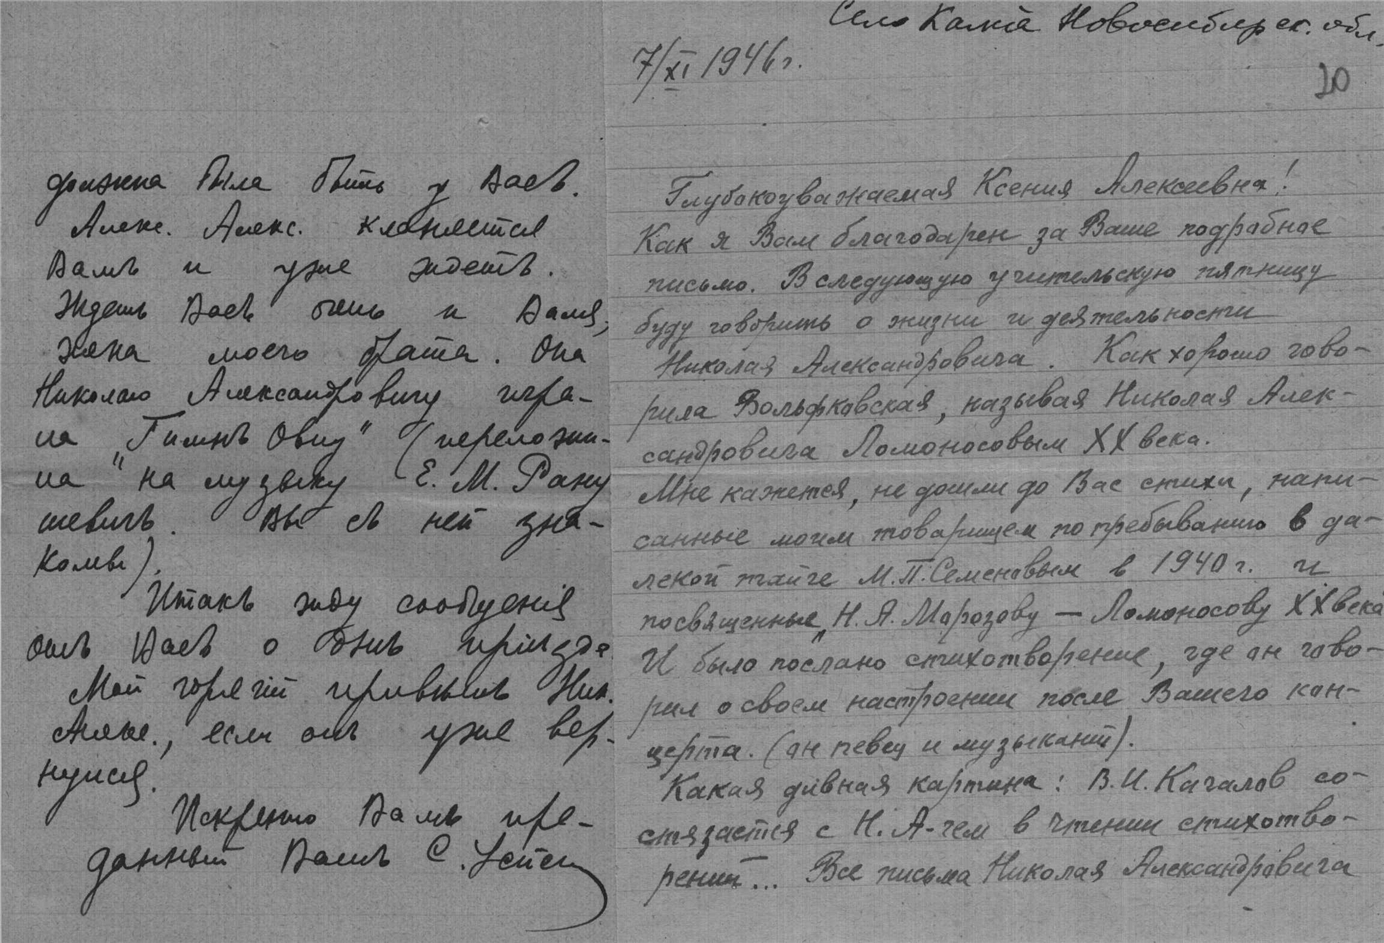 должна была быть у Васъ.
Алекс. Алекс. кланяется
Вамъ и уже ждетъ.
Ждетъ Васъ очень и Валя,
жена моего брата. Она
Николаю Александровичу игра-
ла „Гимнъ Овну" (переложи-
ла на музыку Е. М. Рану
шевичъ. Вы съ ней зна-
комы).
Итакъ жду сообщенія
отъ Васъ о днѣ пріѣзда
Мой горячій привѣтъ Ник.
Алекс., если онъ уже вер-
нулся.
Искренно Вамъ пре-
данный Вамъ С.
Село Новосибирск. обл.
7/XI 1946 г.
20
Глубокоуважаемая Ксения Алексеевна!
Как я Вам благодарен за Ваше подробное
письмо. В следующую учительскую пятницу
буду говорить о жизни и деятельности
Николая Александровича. Как хорошо гово-
рила Вольфковская, называя Николая Алек-
сандровича Ломоносовым XX века.
Мне кажется, не дошли до Вас стихи, напи-
санные моим товарищем по пребыванию в да-
лекой тайге М.П.Семеновым в 1940 г. и
посвященные „Н.А. Морозову — Ломоносову XX века
И было послано стихотворение, где он гово-
рил о своем настроении после Вашего кон-
церта. (он певец и музыкант).
Какая дивная картина: В.И. Качалов со-
стязается с Н. А-чем в чтении стихотво-
рений... Все письма Николая Александровича